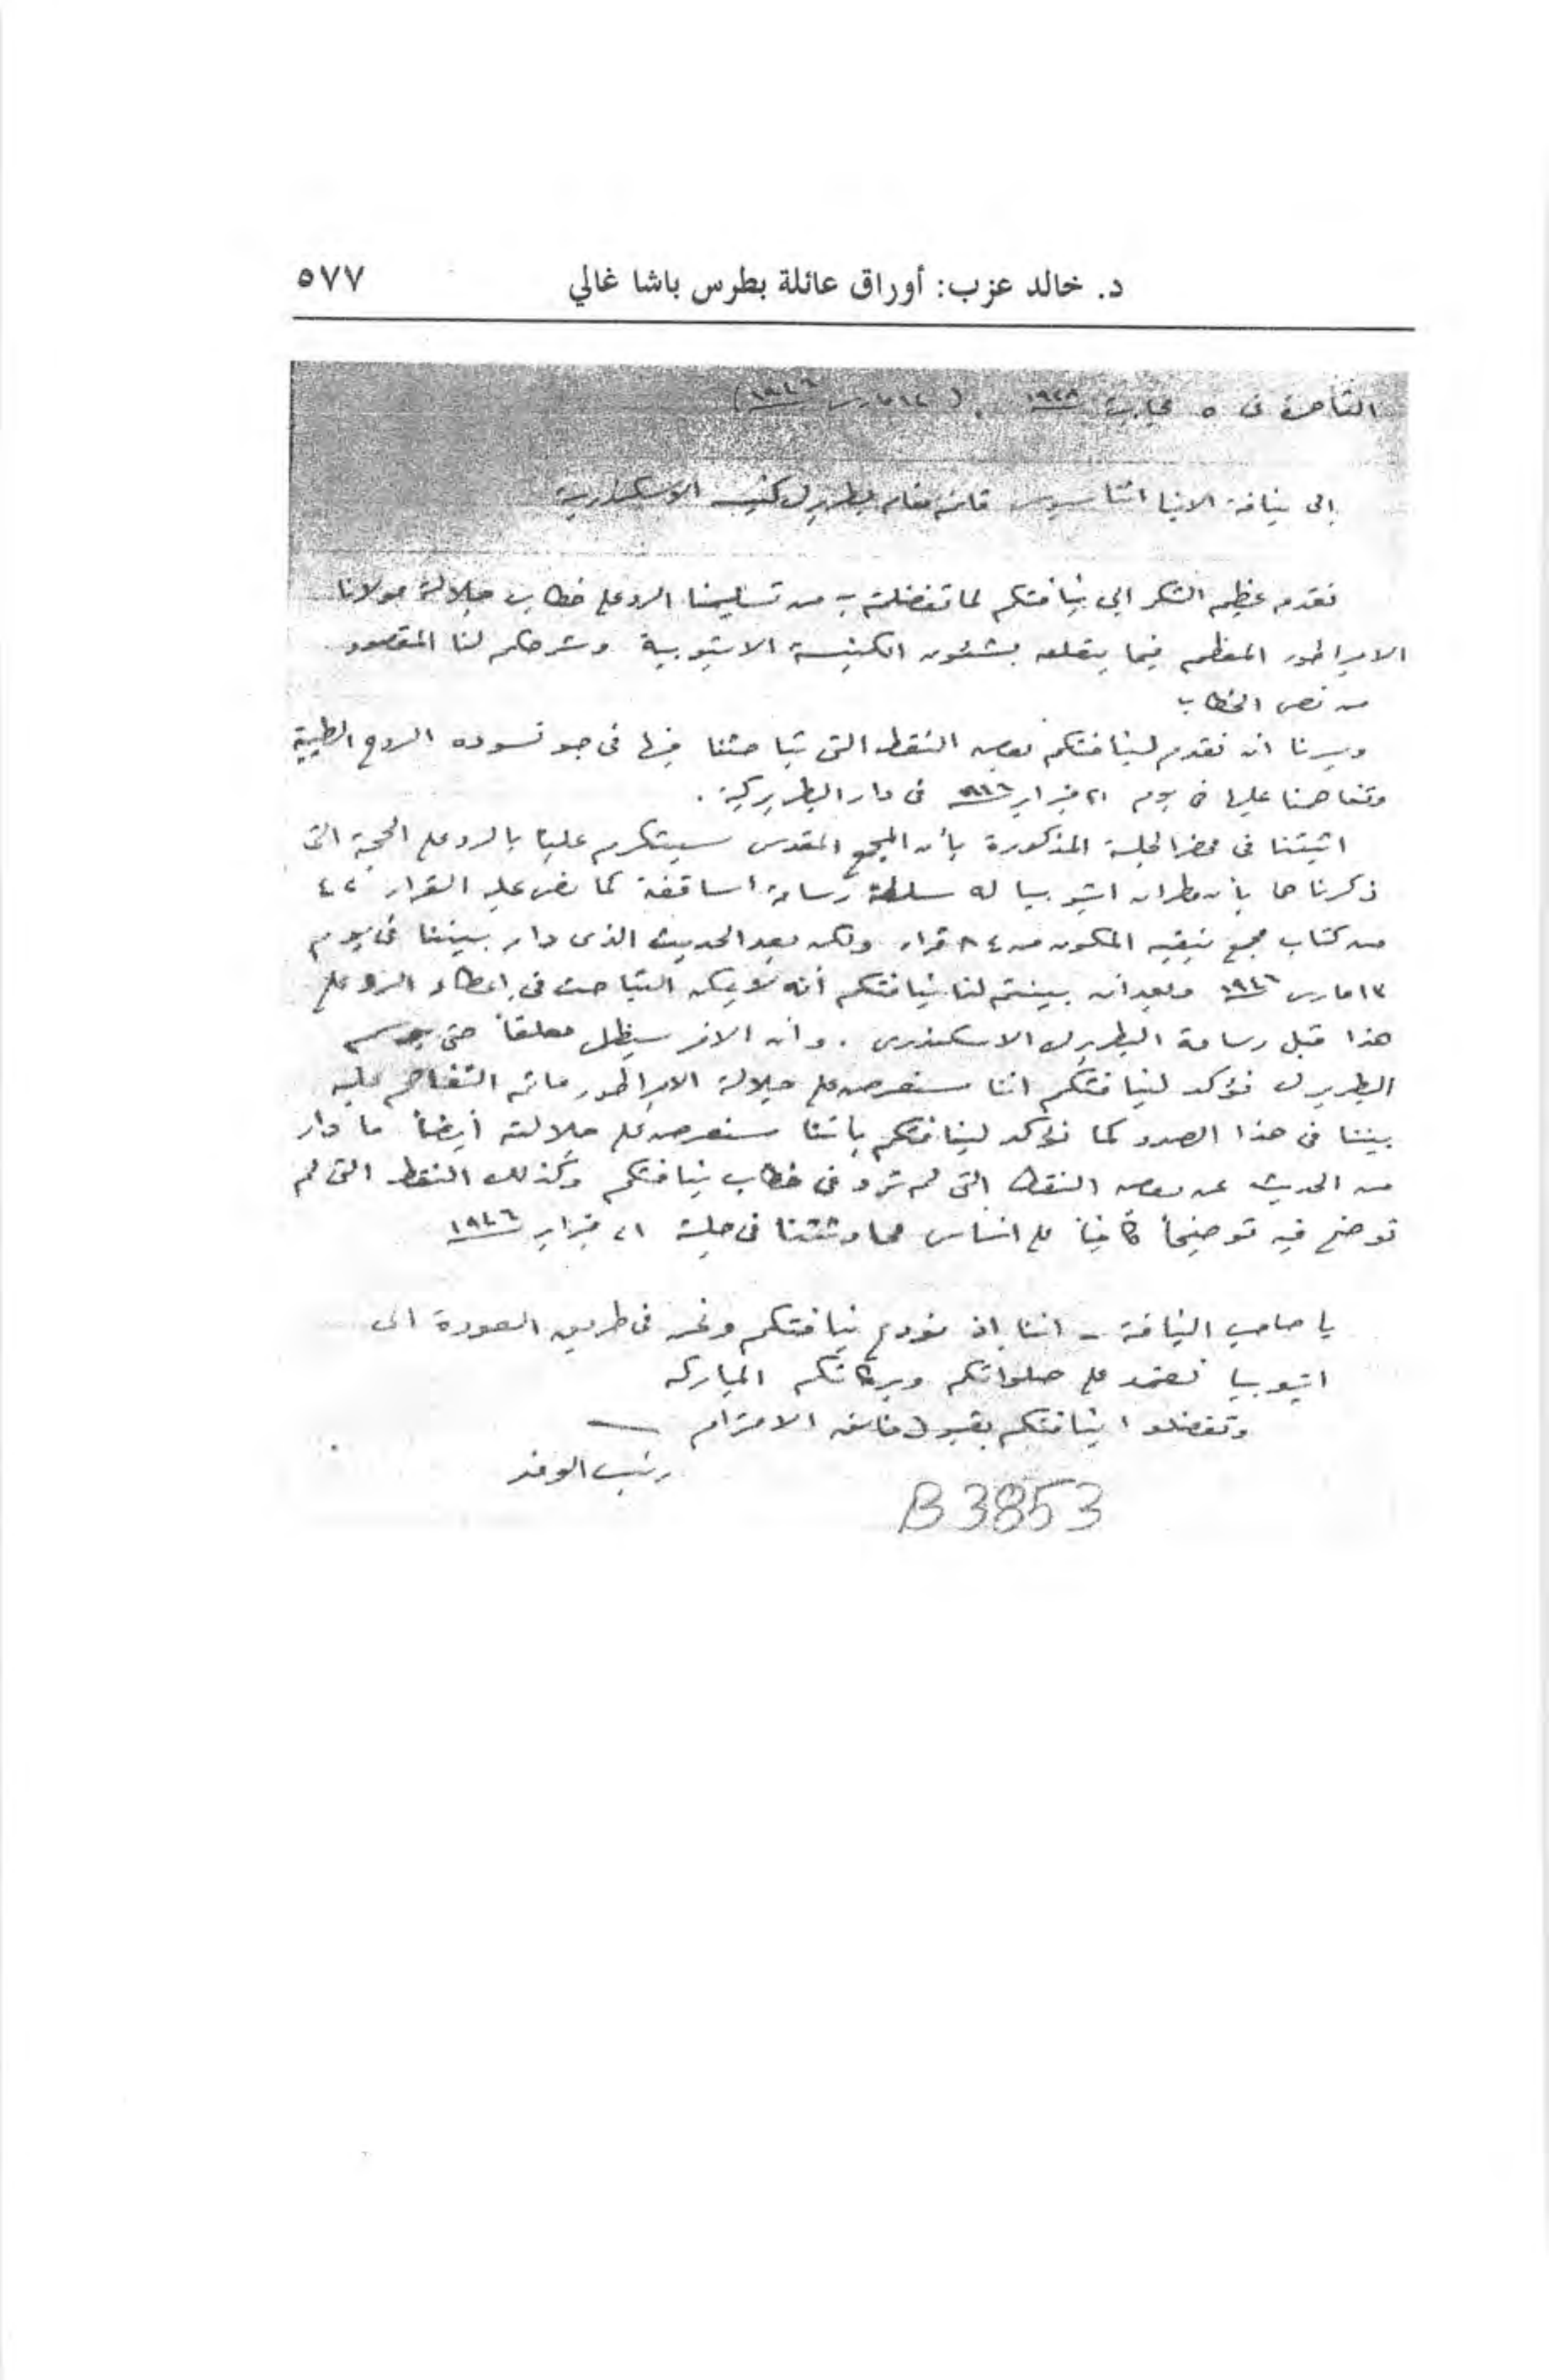 د. خالد عزب: أوراق عائلة بطرس باشا غالي
٥٧٧
القاهرة فى ٥ ١٩٣٨ (١٤ مارس ١٩٤٦)
إلى نيافة الانبا اثناسيوس قائم مقام بطريرك كنيسة الاسكندرية
نقدم عظيم الشكر الى نيافتكم لما تفضلتم به من تسليمنا الرد على خطاب جلالة مولانا
الامبراطور المعظم فيما يتعلق بشئون الكنيسة الاتيوبية وشرحكم لنا المقصود
من نص الخطاب
ويسرنا ان نقدم لنيافتكم بعض النقط التى تباحثنا فيها فى جو تسوده الروح الطيبة
وتفاهمنا عليها فى يوم ٢١ فبراير ١٩٤٦ فى دار البطريركية .
اثبتنا فى محضر الجلسة المذكورة بأن المجمع المقدس سيتكرم علينا بالرد على الحجة التى
ذكرناها بأن مطران اتيوبيا له سلطة رسامة اساقفة كما نص عليه القرار ٤٢
من كتاب مجمع نيقيه المكون من ٨٤ قرار ولكن بعد الحديث الذى دار بيننا فى يوم
١٣ مارس ١٩٤٦ وبعد ان بينتم لنا نيافتكم أنه لا يمكن التباحث فى اعطاء الرد على
هذا قبل رسامة البطريرك الاسكندرى . وان الامر سيظل معلقاً حتى يرسم
البطريرك نؤكد لنيافتكم اننا سنعرض على جلالة الامبراطور ما تم التفاهم عليه
بيننا فى هذا الصدد كما نؤكد لنيافتكم بأننا سنعرض على جلالته أيضاً ما دار
من الحديث عن بعض النقط التى لم ترد فى خطاب نيافتكم وكذلك النقط التى لم
توضح فيه توضيحاً كافياً على اساس محادثتنا فى جلسة ٢١ فبراير ١٩٤٦
يا صاحب النيافة - اننا إذ نودع نيافتكم ونحن فى طريق العودة الى
اتيوبيا نعتمد على صلواتكم وبركاتكم المباركه
وتفضلوا نيافتكم بقبول فائق الاحترام
رئيس الوفد
B3853